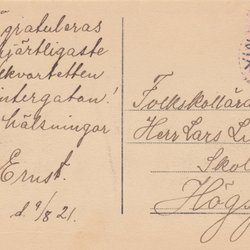 gratuleras
hjärtligaste
lkvartetten
intergatan!
hälsningar
Ernst.
d. 9/8 21.
Folkskollär
Herr Lars Li
Skol
Högs